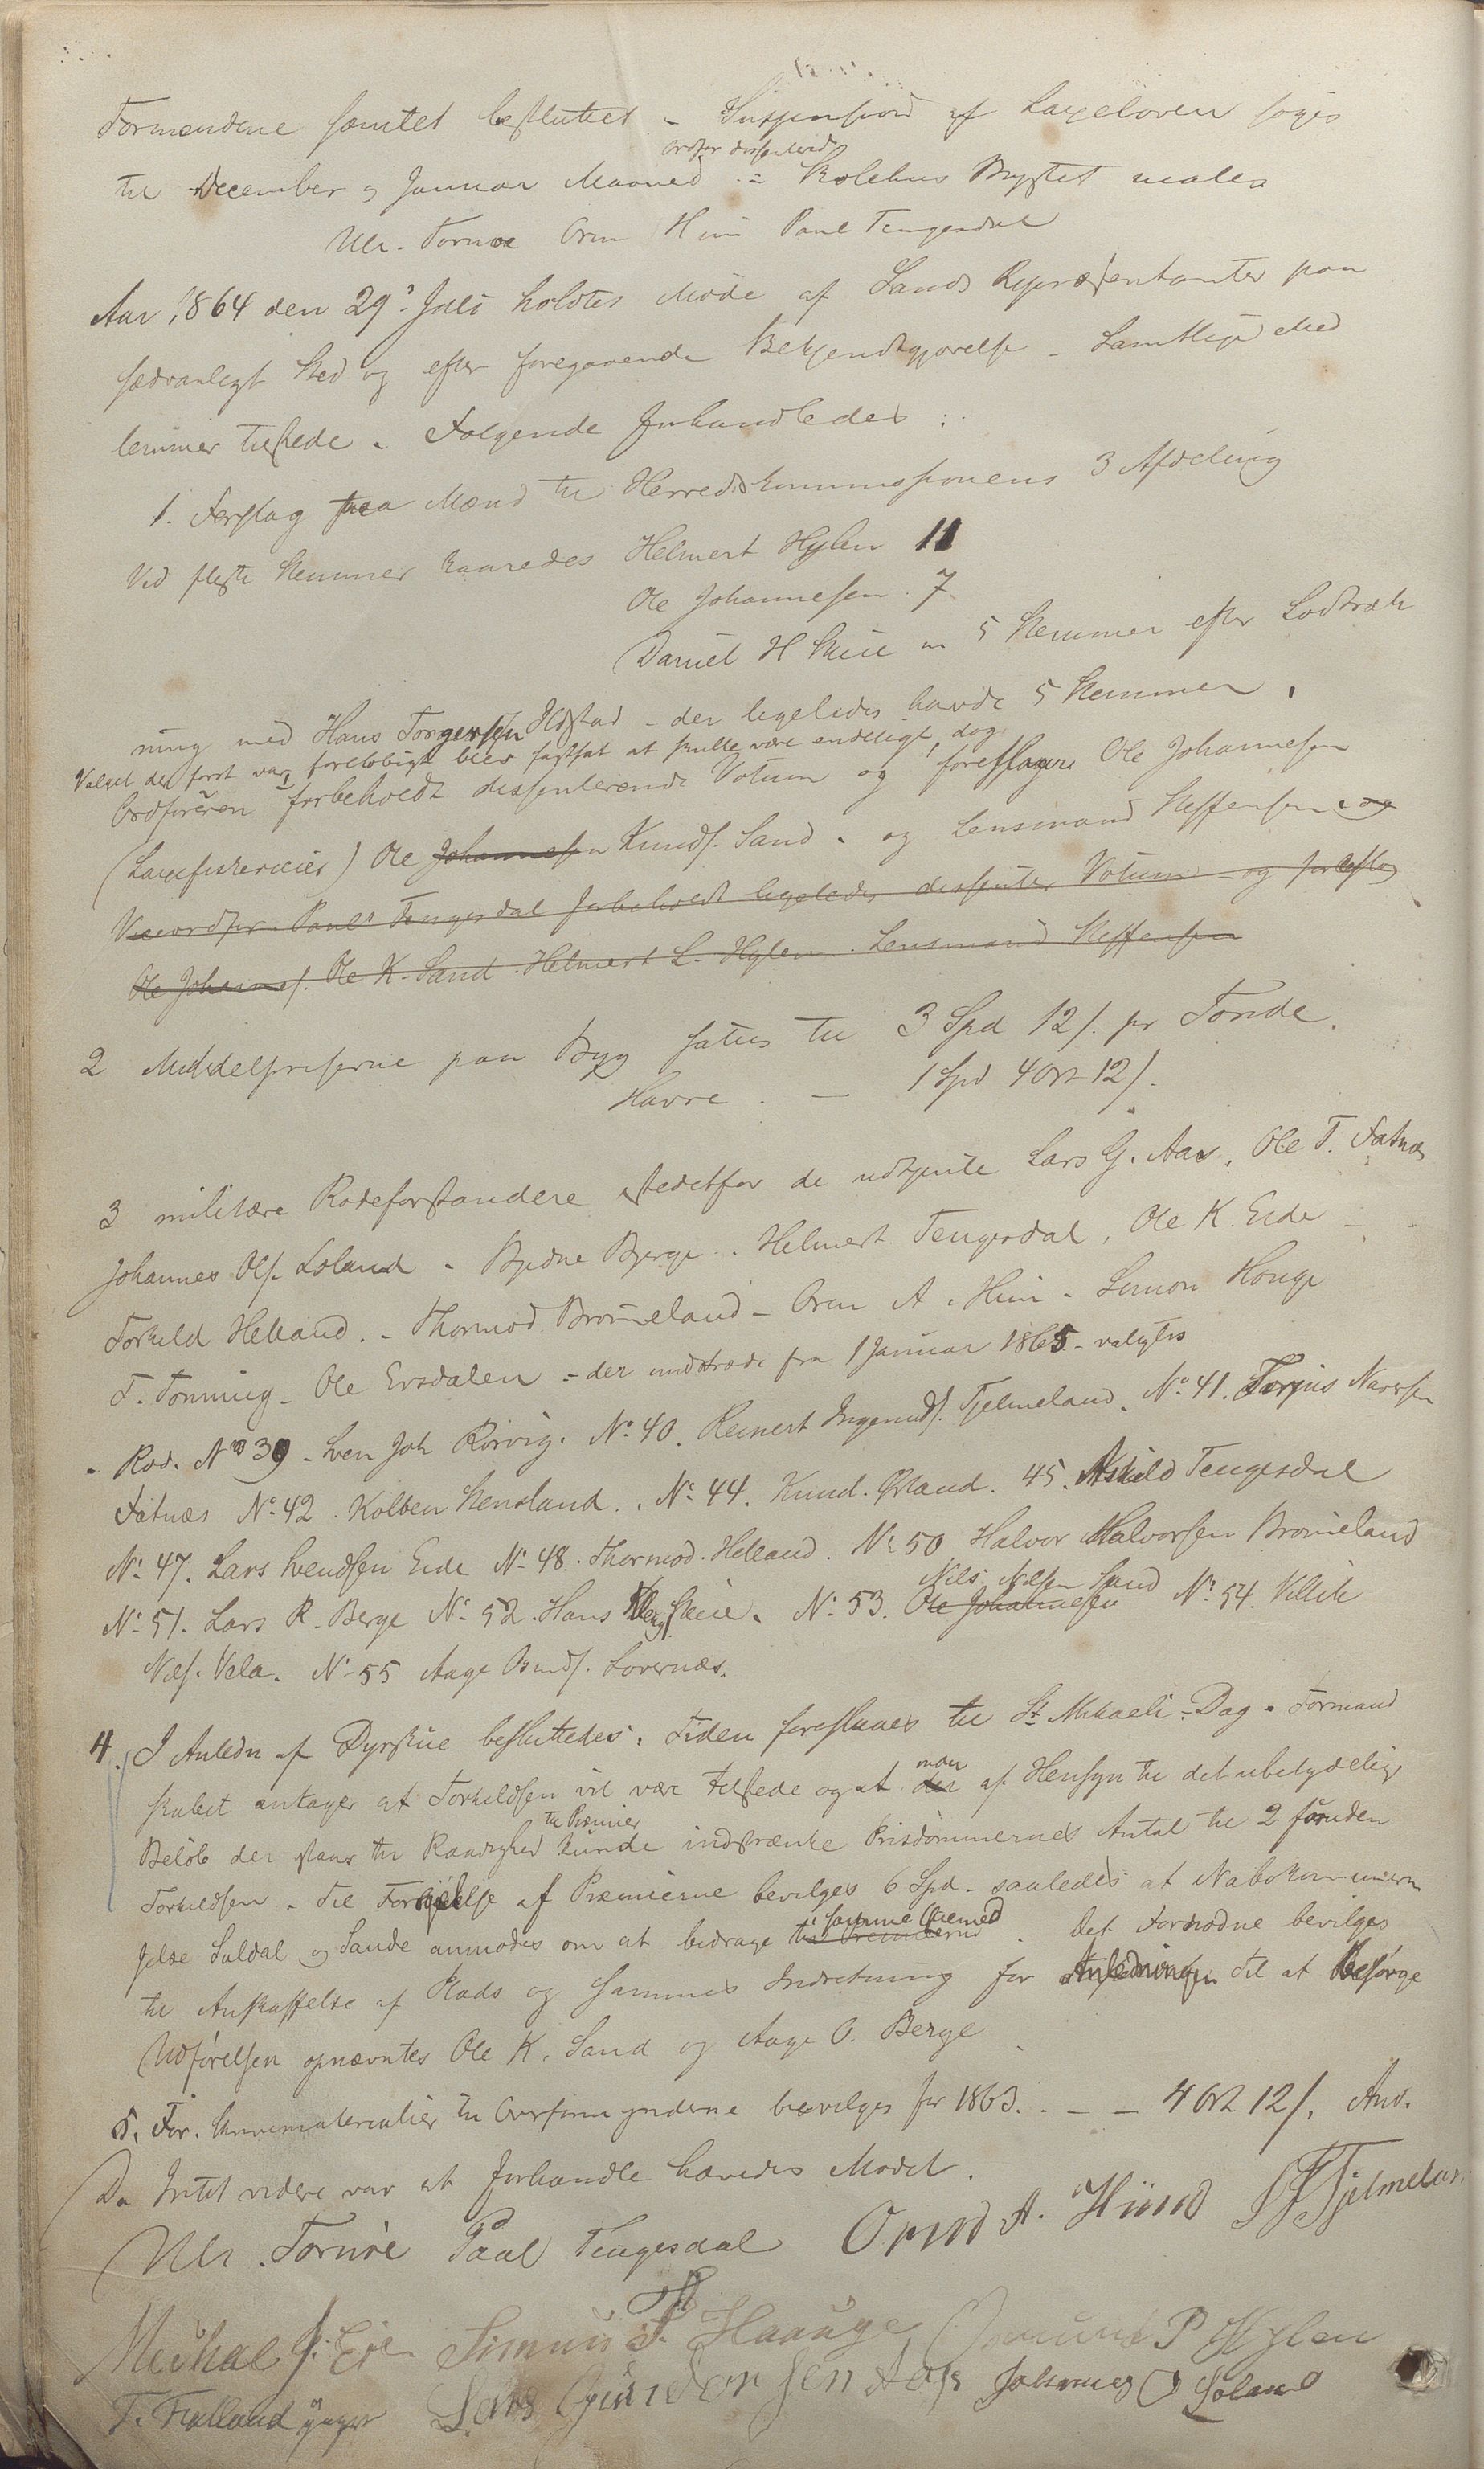 Formændene samtet besluttet - Suspension af Laxeloven søges
Ordfør dissenterede
til December og Januar Maaned .= Skolehus Bygtet males
Ulr. Tornøe Orm Hiim Paul Tengesdal
Aar 1864 den 29de Juli holdtes Møde af Sands Repræsentanter paa
sædvanligt Sted og efter foregaaende Bekjendtgjørelse - Samtlige Med
lemmer tilstede - Følgende forhandledes :
1. Forslag paa Mænd til Herredskommissionens 3 Afdeling
Ved fleste Stemmer kaaredes Helmert Hylen 11
Ole Johannesen . 7
Daniel H Skiie 5 Stemmer efter Lodtræk
ning med Hans Torgersen Ilstad - der ligeledes havde 5 Stemmer .
Valget der først var foreløbigt blev fastsat at skulle være endeligt, dog
Ordføreren forbeholdt dissenterende Votum og foreslager Ole Johannesen
(Laxefiskereier) Ole Johannesen Knuds. Sand . og Lensmand Steffensen . og
Viceordfør. Paul Tengesdal forbeholdt ligeledes dissenter Votum - og foreslog
Ole Johannes. Ole K. Sand . Helmert L. Hylen . Lensmand Steffensen
2 Middelpriserne paa Byg sattes til 3 Spd 12 s. pr Tønde.
Havre . — 1 Spd 4 Ort 12 s.
3 militære Rodeforstandere istedetfor de udtjente Lars G. Aas, Ole T. Fatnæs
Johannes Ols. Løland - Berge . Helmert Tengesdal, Ole K. Eide -
Torkild Helland . - Thormod Bromeland - Orm A. Hiim - Simon Houge
T. Tonning - Ole Ersdalen - der indtræde fra 1 Januar 1865 - valgtes
- Rod. No 39 - Sven Joh Rørvig . No 40. Reinert Ingemds. Tjelmeland . No 41. Terjus
Fatnæs No 42 . Kolben Stensland . No 44. Knud . Ørland . 45. Askild Tengesdal
No 47. Lars Svendsen Eide No 48. Thormod . Helland . No 50 Halvor Halvorsen Bromeland
Nils Nilsen Sand
No 51. Lars R. Berge No 52. Hans Skiie . No 53. Ole Johannesen No 54. Villik
Nils. Vela . No 55 Aage Lovernæs.
4. I Anledn af Dyrskue besluttedes . Tiden foreslaaes til St Mikaeli-Dag . Formand
skabet antager at Torkildsen vil være tilstede og at der man af Hensyn til det ubetydelige
Beløb der staar til Raadighed til Præmier kunde indskrænke Prisdommernes Antal til 2 foruden
Torkildsen . Til Forøgelse af Præmierne bevilges 6 Spd - saaledes at Nabokommunerne
Jelse Suldal og Sande anmodes om at bidrage til Præmierne samme Øiemed . Det Fornødne bevilges
til Anskaffelse af Plads og sammes Indretning for Anledningen til at Besørge
Udførelsen opnævntes Ole K. Sand og Aage O. Berge
5. For . Skrivematerialier til Overformynderne bevilges for 1863. - - - 4 Ort 12 s. Anv.
Da Intet videre var at forhandle hævedes Mødet .
Ulr. Tornøe Paul Tengesdal Ormd A. Hiimd Tjelmeland
Michal J. Eie Simun S. Haauge P Hylen
T. Helland yngre Lars Gundersen Aas Johannes O Løland